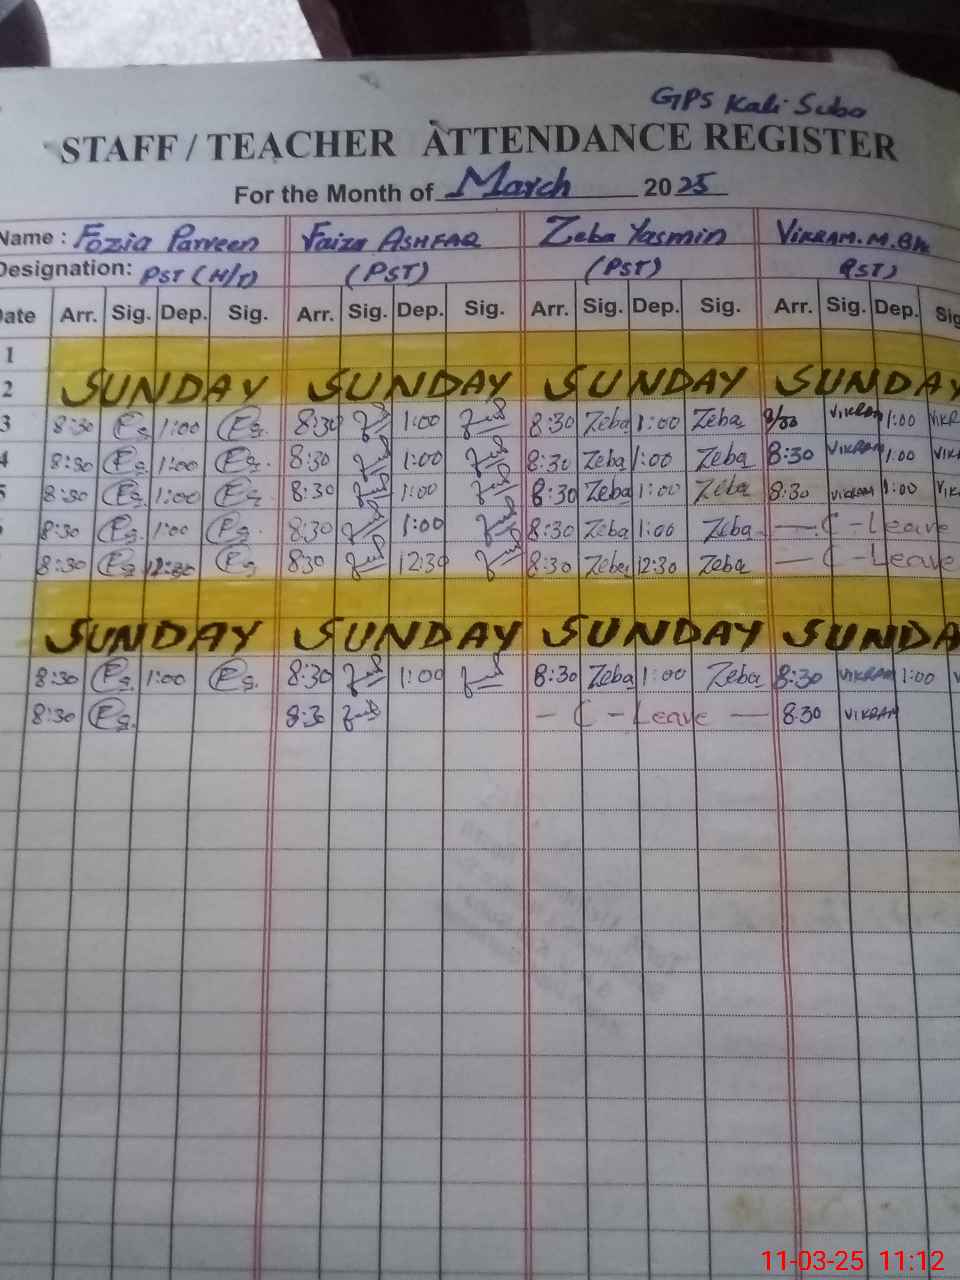 GPS Kali Suba
STAFF / TEACHER ATTENDANCE REGISTER
For the Month of March 2025
Name : Fozia Parveen Faiza ASHFAQ Zeba Yasmin VIKRAM.M.
Designation: PST (H/T) (PST) (PST) (PST)
Date Arr. Sig. Dep. Sig. Arr. Sig. Dep. Sig. Arr. Sig. Dep. Sig. Arr. Sig. Dep. Sig
1
2 SUNDAY SUNDAY SUNDAY SUNDAY
3 8:30 1:00 8:30 1:00 8:30 Zeba 1:00 Zeba VIKRAM 1:00 VIKR
4 8:30 1:00 8:30 1:00 8:30 Zeba 1:00 Zeba 8:30 VIKRAM 1:00 VIK
5 8:30 1:00 8:30 1:00 8:30 Zeba 1:00 Zeba 8:30 VIKRAM 1:00 VIK
8:30 1:00 8:30 1:00 8:30 Zeba 1:00 Zeba — C - Leave
8:30 12:30 830 12:30 8:30 Zeba 12:30 Zeba — C - Leave
SUNDAY SUNDAY SUNDAY SUNDA
8:30 1:00 8:30 1:00 8:30 Zeba 1:00 Zeba 8:30 VIKRAM 1:00
8:30 8:30 — C - Leave — 8:30 VIKRAM
11-03-25 11:12